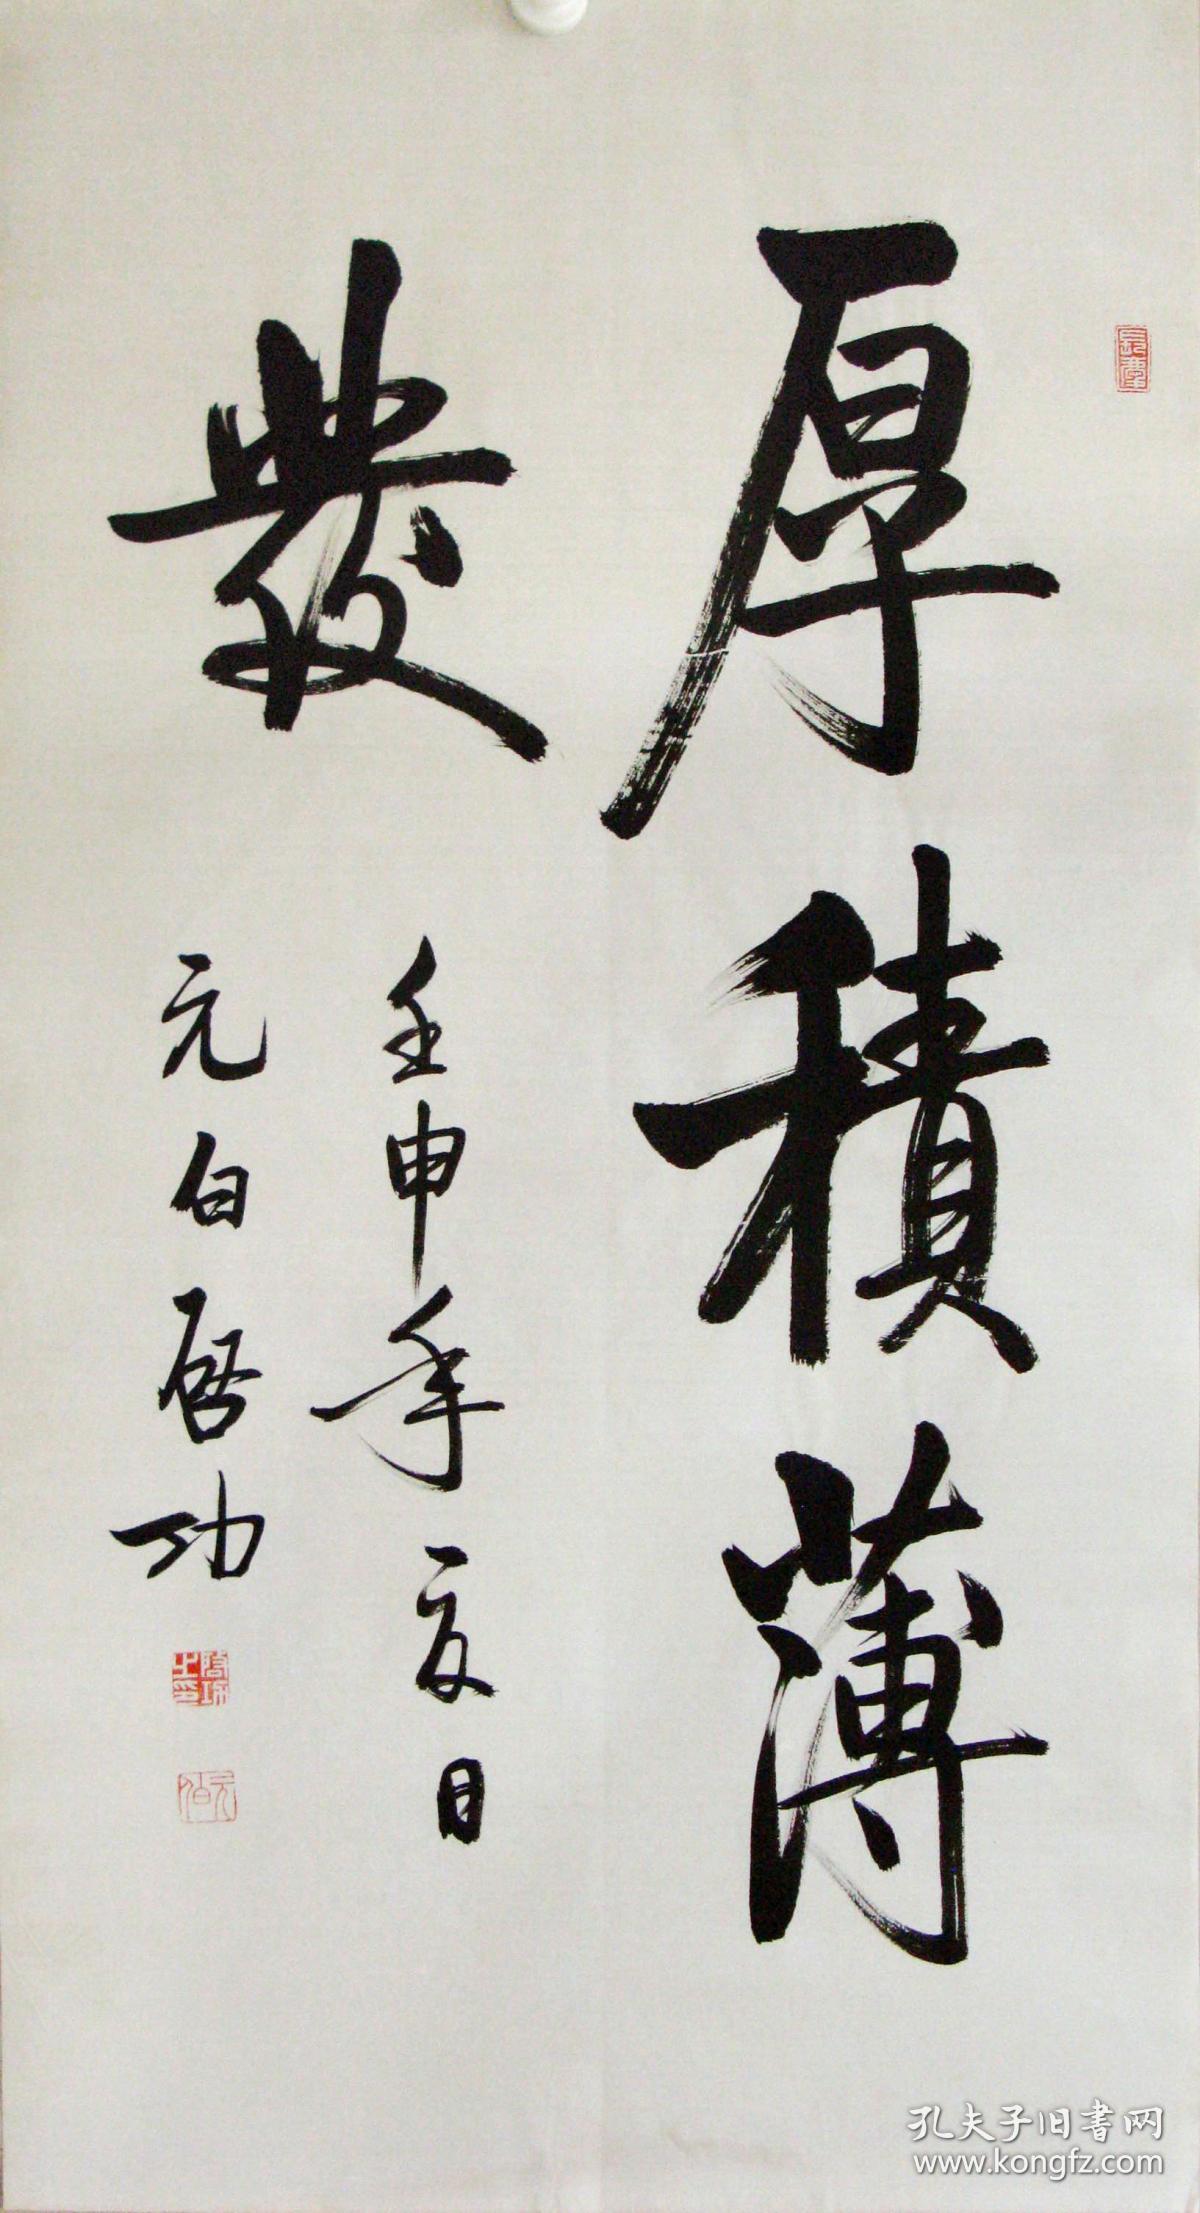 厚積薄
發
壬申年夏日
元白啓功
啓功之印
元白
孔夫子旧书网
www.kongfz.com